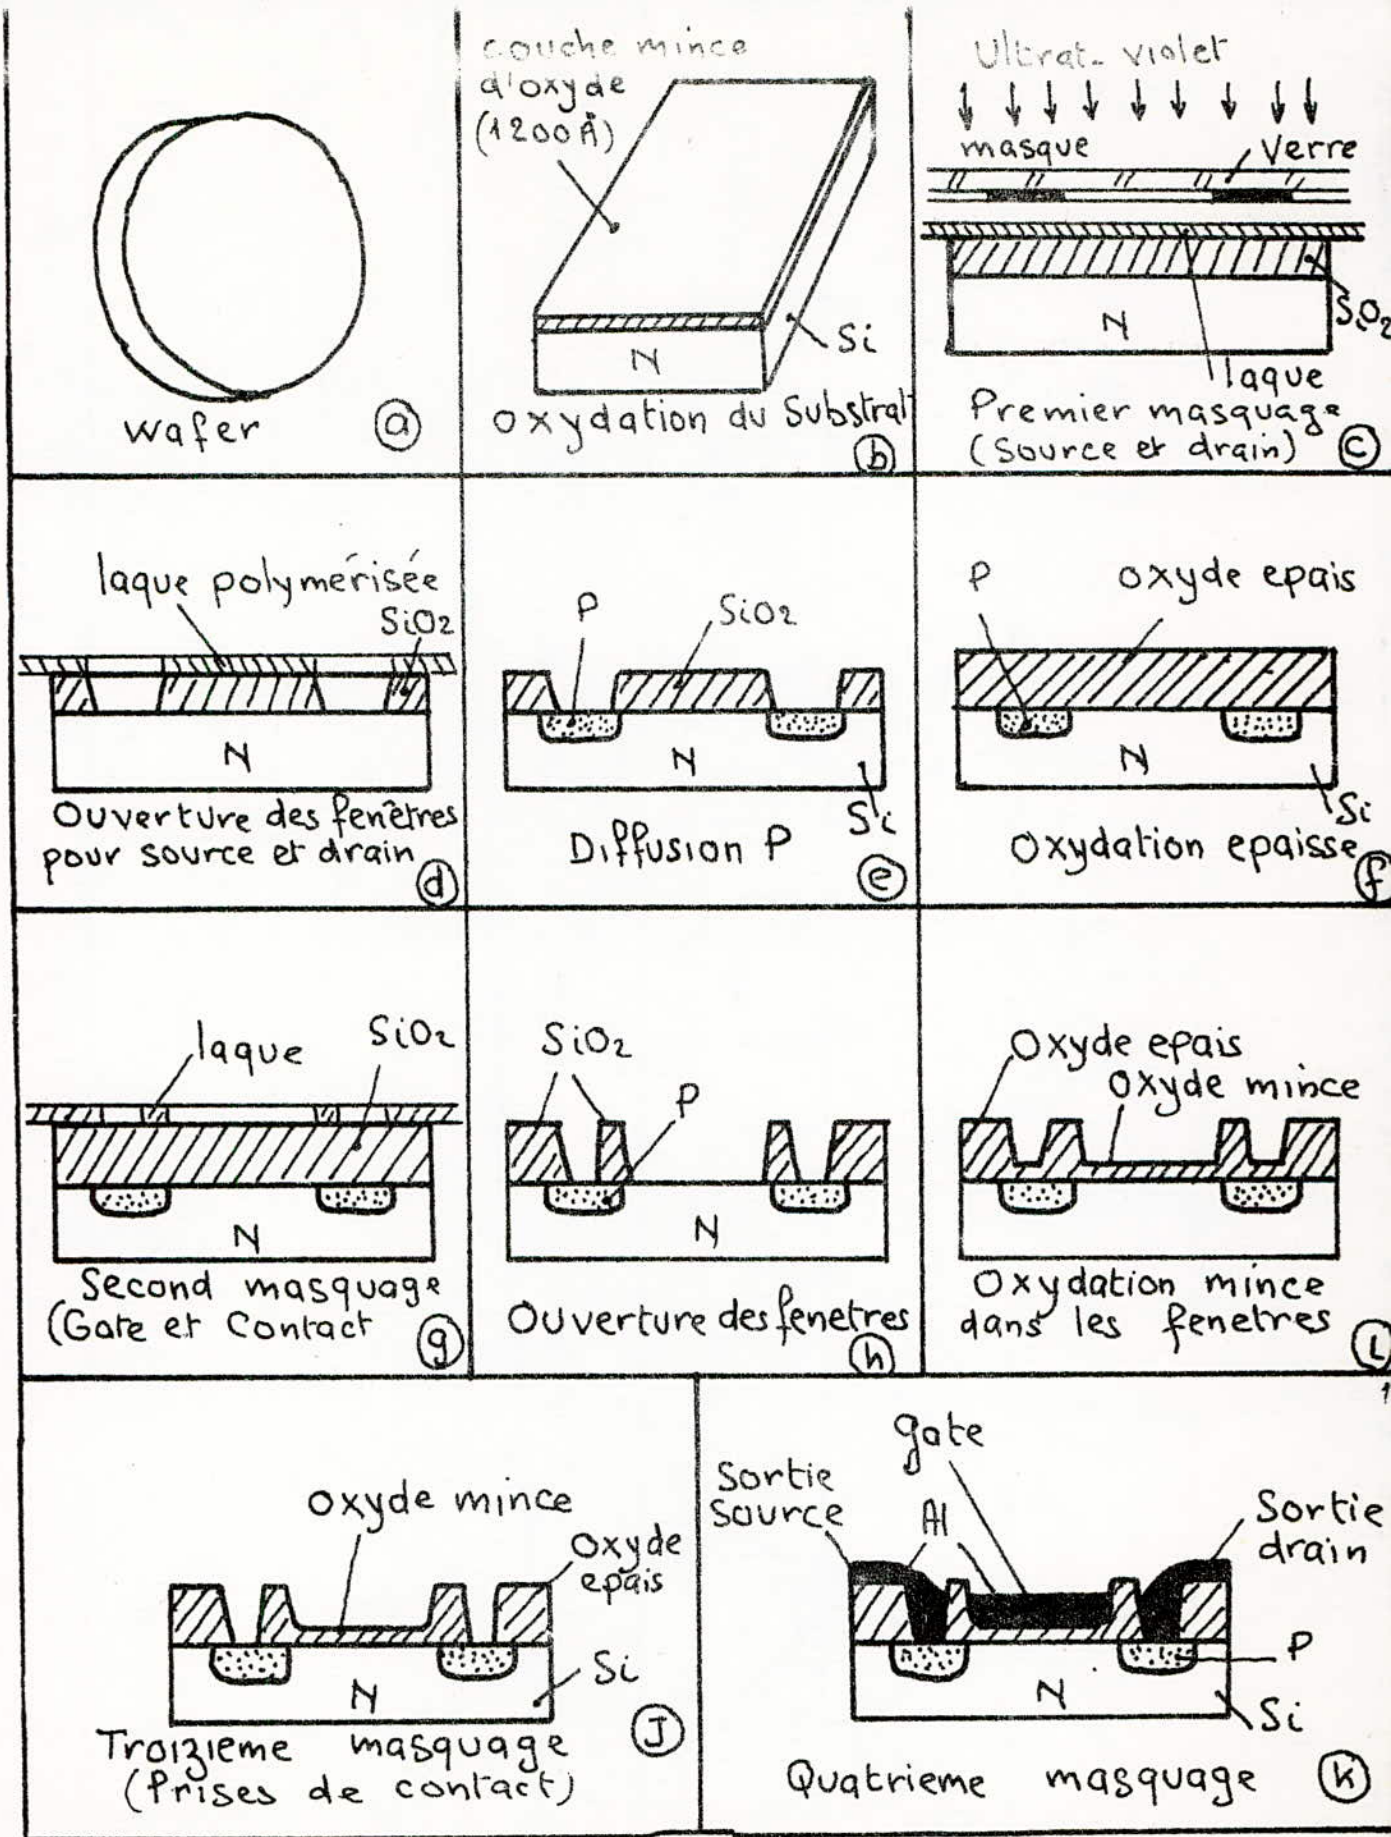 wafer
a
couche mince
d'oxyde
(1200 Å)
N
Si
oxydation du Substrat
b
Ultrat-violet
masque
Verre
N
SiO2
laque
Premier masquage
(Source et drain)
c
laque polymérisée
SiO2
N
Ouverture des fenêtres
pour source et drain
d
P
SiO2
N
Si
Diffusion P
e
P
oxyde epais
N
Si
Oxydation epaisse
f
laque
SiO2
N
Second masquage
(Gate et Contact
g
SiO2
P
N
Ouverture des fenetres
h
Oxyde epais
oxyde mince
Oxydation mince
dans les fenetres
i
oxyde mince
oxyde
epais
N
Si
Troizieme masquage
(Prises de contact)
J
gate
Sortie
source
Al
Sortie
drain
P
N
Si
Quatrieme masquage
K